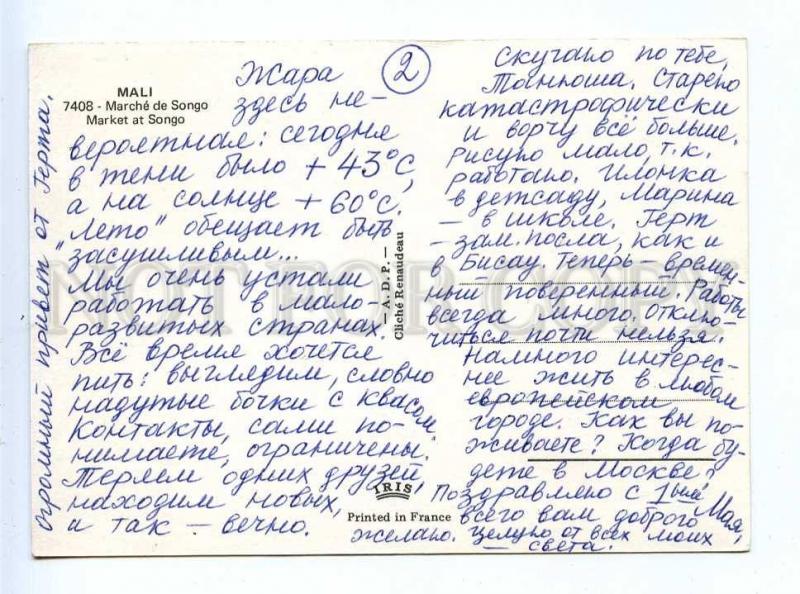 MALI
7408 - Marché de Songo
Market at Songo
2
Жара
здесь не-
вероятная: сегодня
в тени было +43°С,
а на солнце +60°С.
"Лето" обещает быть
засушливым...
Мы очень устали
работать в мало-
развитых странах.
Всё время хочется
пить: выглядим, словно
надутые бочки с квасом.
Контакты, сами по-
нимаете, ограничены.
Теряем одних друзей,
находим новых,
и так – вечно.
Огромный привет от Герта.
— A. D. P. —
Cliché Renaudeau
IRIS
Printed in France
Скучаю по тебе,
Танюша. Старею
катастрофически
и ворчу всё больше.
Рисую мало, т.к.
работаю. Илонка
в детсаду, Марина
– в школе. Герт
– зам. посла, как и
в Бисау. Теперь – времен-
ный поверенный. Работы
всегда много. Отклю-
читься почти нельзя.
Намного интерес-
нее жить в любом
европейском
городе. Как вы по-
живаете? Когда бу-
дете в Москве?
Поздравляю с 1ым Мая,
всего вам доброго
желаю. Целую от всех моих
– Света.
NOT FOR COPY